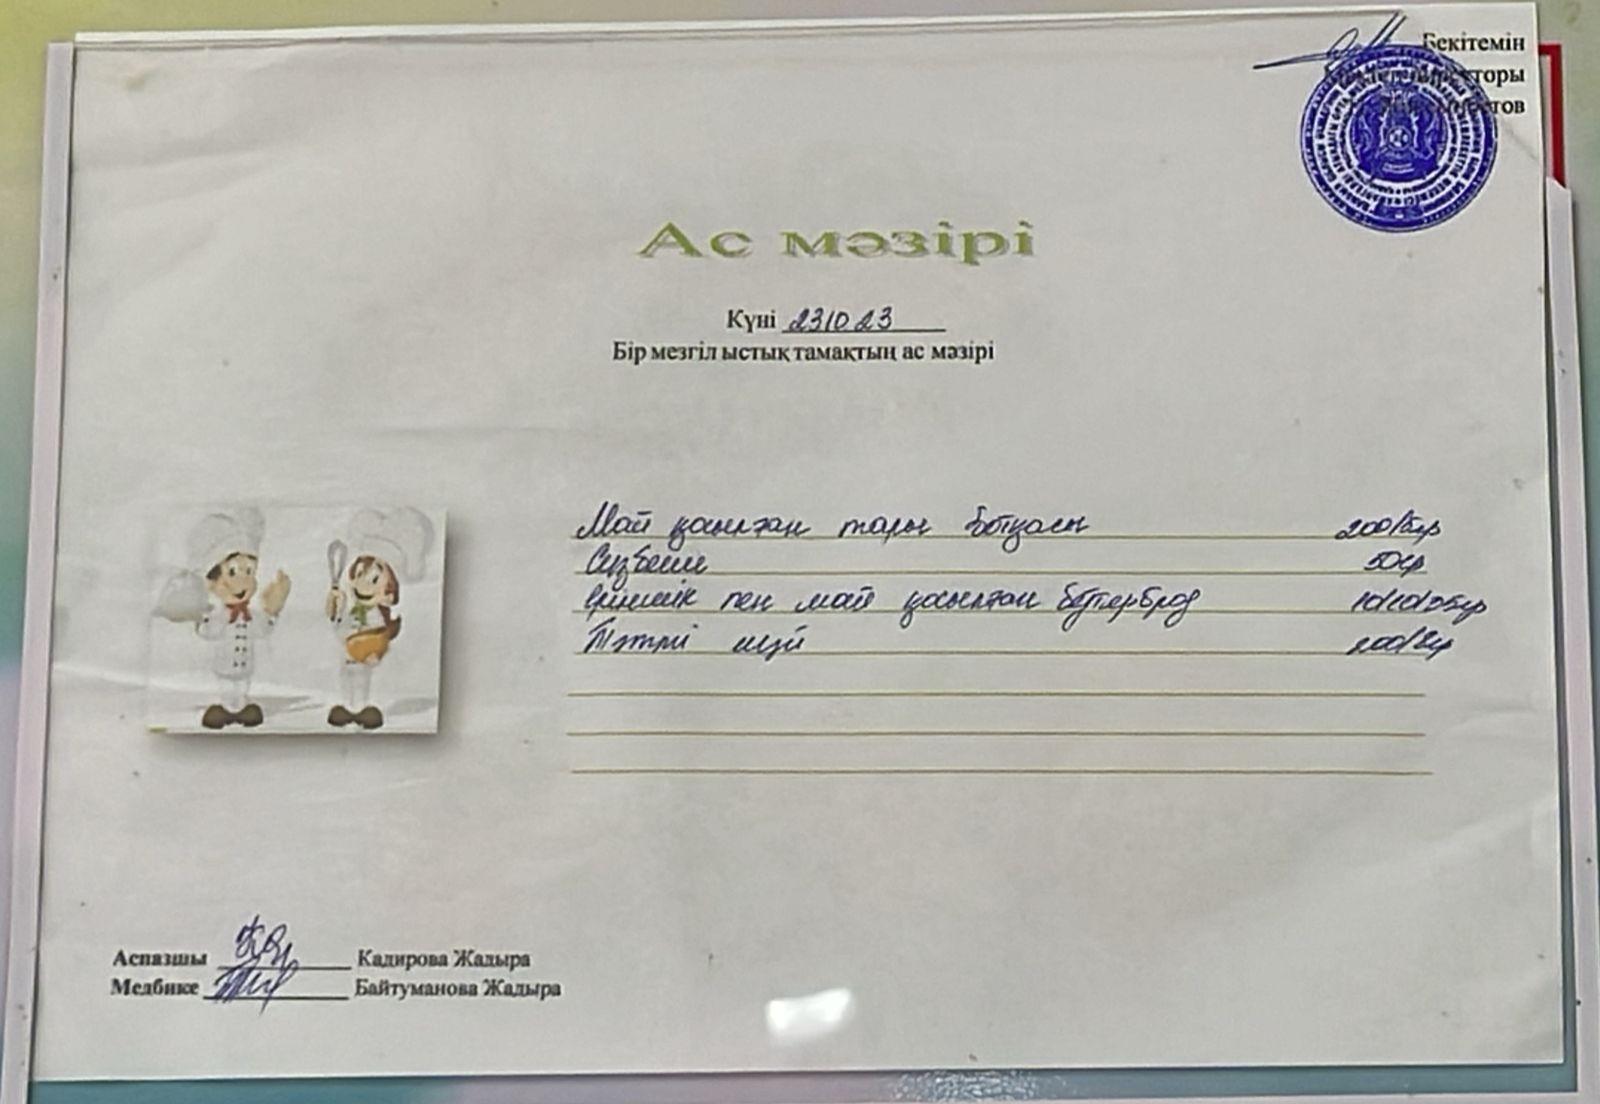 Бекітемін
Ас мәзірі
Күні 231023
Бір мезгіл ыстық тамақтың ас мәзірі
Май қосылған тары ботқасы 200/5гр
Сүзбеше 50гр
Ірімшік пен май қосылған бутерброд
Тәтті шәй
Аспазшы Кадирова Жадыра
Медбике Байтуманова Жадыра